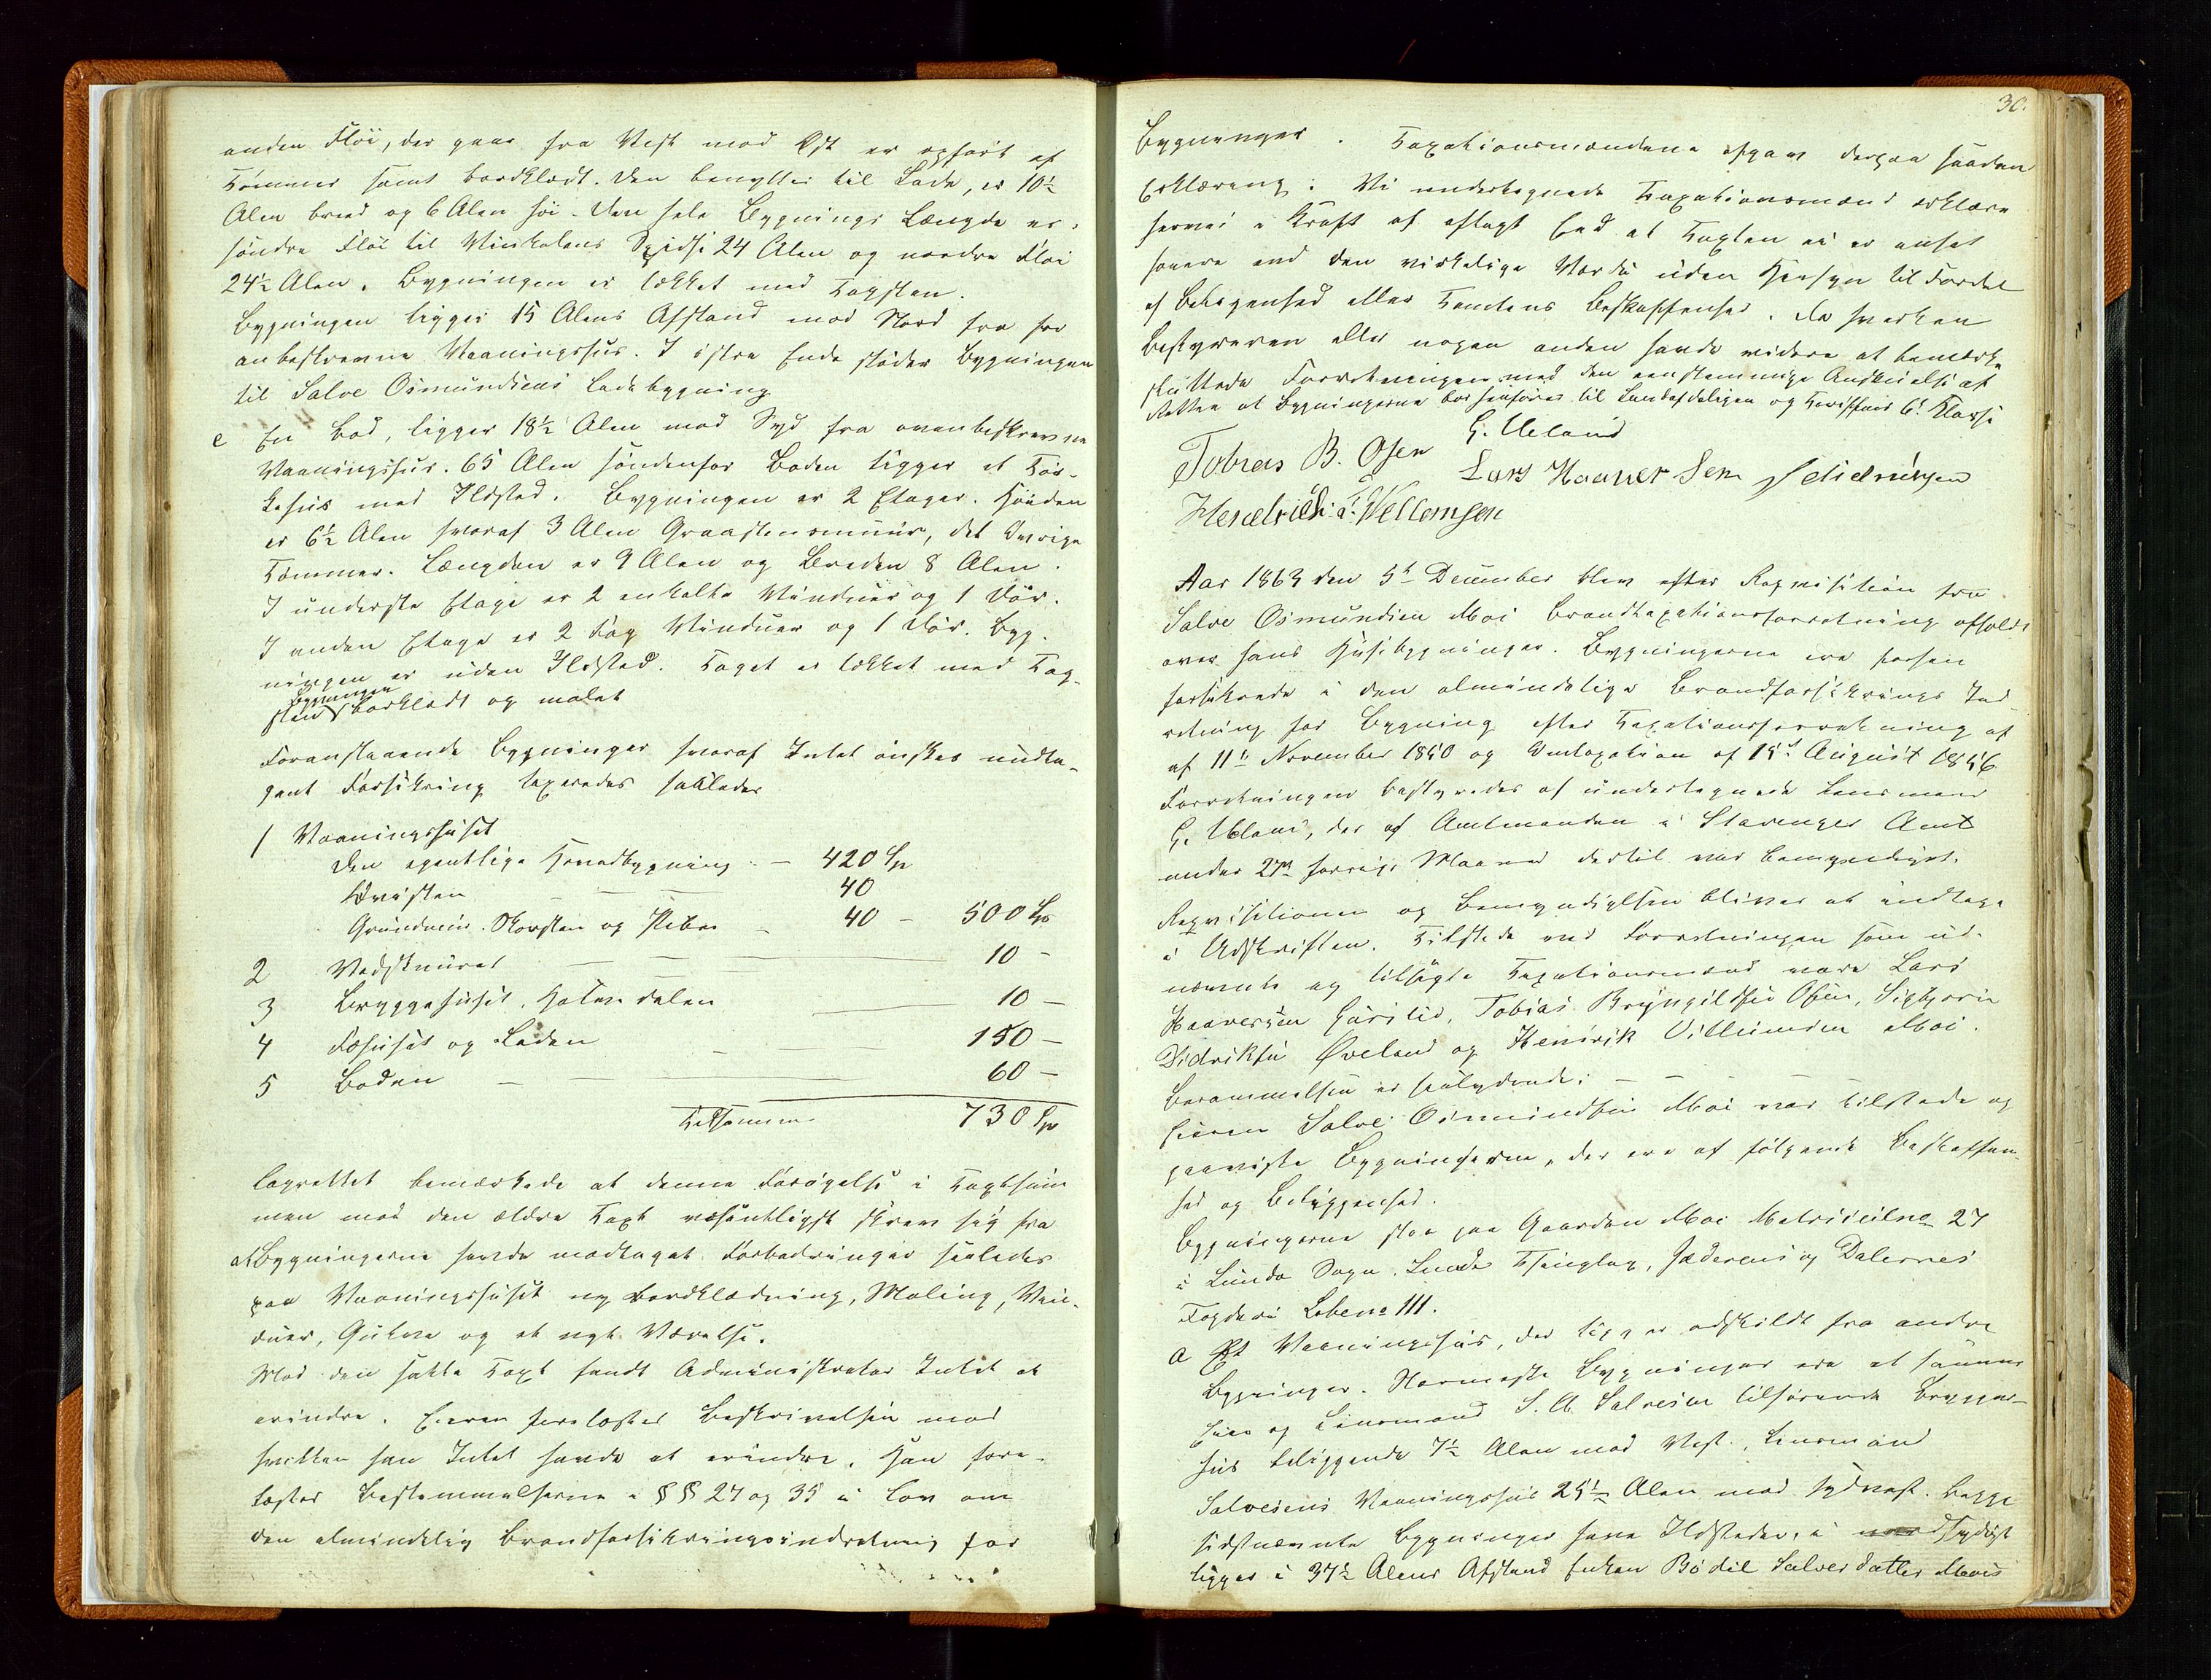 anden Fløi, der gaar fra Vest mod Øst er opført af
Tømmer samt bordklædt. Den benyttes til Lade, er 10½
Alen bred og 6 Alen høi. Den hele Bygnings Længde er,
søndre Fløi til Vinkelens Spidse 24 Alen og nordre Fløi
24½ Alen. Bygningen er tækket med Tagsten.
Bygningen ligger 15 Alens Afstand mod Nord fra for
anbeskrevne Vaaningshus. I østre Ende støder Bygningen
til Salve Osmundsens Ladebygning
e En Bod, ligger 18½ Alen mod Syd fra ovenbeskrevne
Vaaningshus. 65 Alen søndenfor Boden ligger et Tør-
kehus med Ildsted. Bygningen er 2 Etager. Høiden
er 6½ Alen hvoraf 3 Alen Graastensmuur, det Øvrige
Tømmer. Længden er 9 Alen og Breden 8 Alen.
I underste Etage er 2 enkelte Vinduer og 1 Dør.
I anden Etage er 2 Fag Vinduer og 1 Dør. Byg-
ningen er uden Ildsted. Taget er tækket med Tag-
Bygningen
sten bordklædt og malet
Foranstaaende Bygninger hvoraf Intet ønskes undta-
gent Forsikring taxeredes saaledes
1 Vaaningshuset
Den egentlige Hovedbygning — 420 Sp
Qvisten — — 40
Grundmur. Skorsten og Piber — 40 — 500 Sp
2 Vedskuuret — — 10 —
3 Bryggehuset, Halve delen — 10 —
4 Fæhuset og Laden — 150 —
5 Boden — — 60 —
Tilsammen 730 Sp
Lagrettet bemærkede at denne Forøgelse i Taxtsum
men mod den ældre Taxt væsentligst skrev sig fra
at Bygningerne havde modtaget Forbedringer saaledes
paa Vaaningshuset ny Bordklædning, Maling, Vin-
duer, Gulve og et nyt Værelse.
Mod den satte Taxt fandt Administrator Intet at
erindre. Eieren forelæstes Beskrivelsen mod
hvilken han Intet havde at erindre. Han fore-
læstes Bestemmelserne i §§ 27 og 35 i Lov om
den almindelig Brandforsikringsindretning for
30.
Bygninger. Taxationsmændene afgav derpaa saadan
Erklæring: Vi undertegnede Taxationsmænd erklære
herved i Kraft af aflagt Eed at Taxten ei er ansat
høiere end den virkelige Værdi uden Hensyn til Fordel
af Beliggenhed eller Tomtens Beskaffenhed. Da hverken
Bestyreren eller nogen anden havde videre at bemærke
sluttede Forretningen med den eenstemmige Anskuelse af
Retten at Bygningerne bør henføres til Landafdelingen og Tariffens 6te Klasse
G. Ueland
Tobias B. Osen Lars Haaversen
Hendrich Wellomsen
Aar 1863 den 5te December blev efter Reqvisition fra
Salve Osmundsen Moi Brandtaxationsforretning afholdt
over hans Huusebygninger. Bygningerne ere forhen
forsikrede i den almindelige Brandforsikrings Ind-
retning for Bygning efter Taxationsforretning af
af 11te November 1850 og Omtaxation af 15de August 1856
Forretningen bestyredes af undertegnede Lensmand
G. Ueland, der af Amtmanden i Stavanger Amt
under 27de forrige Maaned dertil var bemyndiget.
Reqvisitionen og Bemyndigelsen bliver at indtage
i Udskriften. Tilstede ved Forretningen som ud-
nævnte og tilsagte Taxationsmænd vare Lars
Haaversen Eursted, Tobias Bryngildsen Osen, Sigbjørn
Didriksen Øveland og Henrik Villumsen Moi.
Berammelsen er saalydende: — — — —
Eieren Salve Osmundsen Moi var tilstede og
paaviste Bygningerne, der ere af følgende Beskaffen-
hed og Beliggenhed.
Bygningerne staa paa Gaarden Moi Matriculno 27
i Lunde Sogn, Lunde Thinglag, Jæderens og Dalernes
Fogderi Løbeno 111.
a Et Vaaningshus, der ligger adskildt fra andre
Bygninger. Nærmeste Bygninger ere et samme
Eier og Lensmand S. A. Salvesen tilhørende Brygger-
hus beliggende 7½ Alen mod Vest, Lensmand
Salvesens Vaaningshus 25½ Alen mod Sydvest. Begge
sidstnævnte Bygninger have Ildsteder. i Sydøst
ligger i 37½ Alens Afstand Enken Bodil Salvesdatter Mois